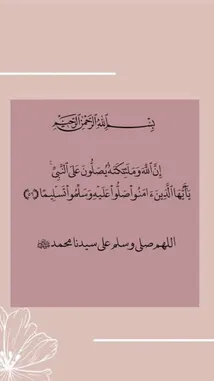 بِسْمِ ٱللَّهِ ٱلرَّحْمَٰنِ ٱلرَّحِيمِ
إِنَّ ٱللَّهَ وَمَلَٰٓئِكَتَهُۥ يُصَلُّونَ عَلَى ٱلنَّبِىِّ ۚ
يَٰٓأَيُّهَا ٱلَّذِينَ ءَامَنُوا۟ صَلُّوا۟ عَلَيْهِ وَسَلِّمُوا۟ تَسْلِيمًا ﴿٥٦﴾
اللهم صلي وسلم على سيدنا محمد ﷺ